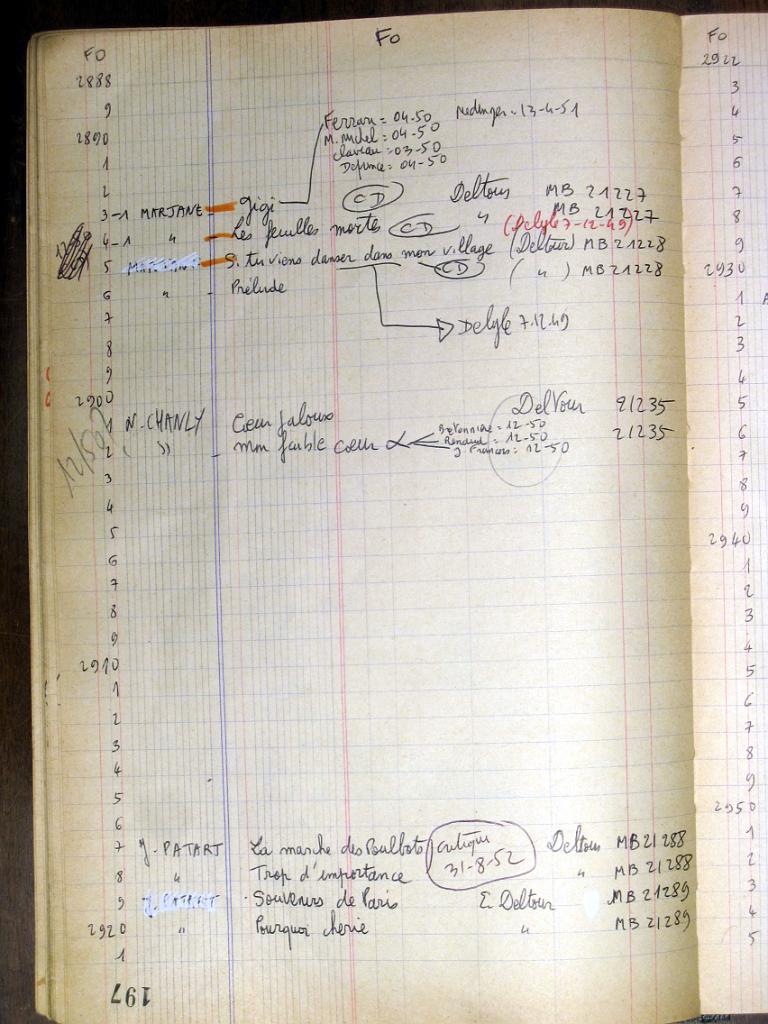 Fo
Fo
2888
9
Ferrari = 04-50 Medinger = 13-4-51
2890
M. Michel = 04-50
1
Claveau = 03-50
Defrance = 04-50
2
3-1 MARJANE - gigi CD Deltour MB 21227
4-1 " - Les feuilles mortes CD " MB 21227
(Delyle 7-12-49)
5 - Si tu viens danser dans mon village (Deltour) MB 21228
6 " - Prélude CD ( " ) MB 21228
7
Delyle 7.12.49
8
9
2900
1 N. CHANLY Cœur jaloux Deltour 21235
2 ( " ) - mon faible cœur 21235
Bretonnière = 12-50
Renaud = 12-50
J. François = 12-50
12/50
3
4
5
6
7
8
9
2910
1
2
3
4
5
6
7 J. PATART La marche des Poulbots critique 31-8-52 Deltour MB 21288
8 " Trop d'importance " MB 21288
9 J. PATART Souvenirs de Paris E. Deltour MB 21289
2920 " Pourquoi chérie " MB 21289
1
197
Fo
2922
3
4
5
6
7
8
9
2930
1
2
3
4
5
6
7
8
9
2940
1
2
3
4
5
6
7
8
9
2950
1
2
3
4
5